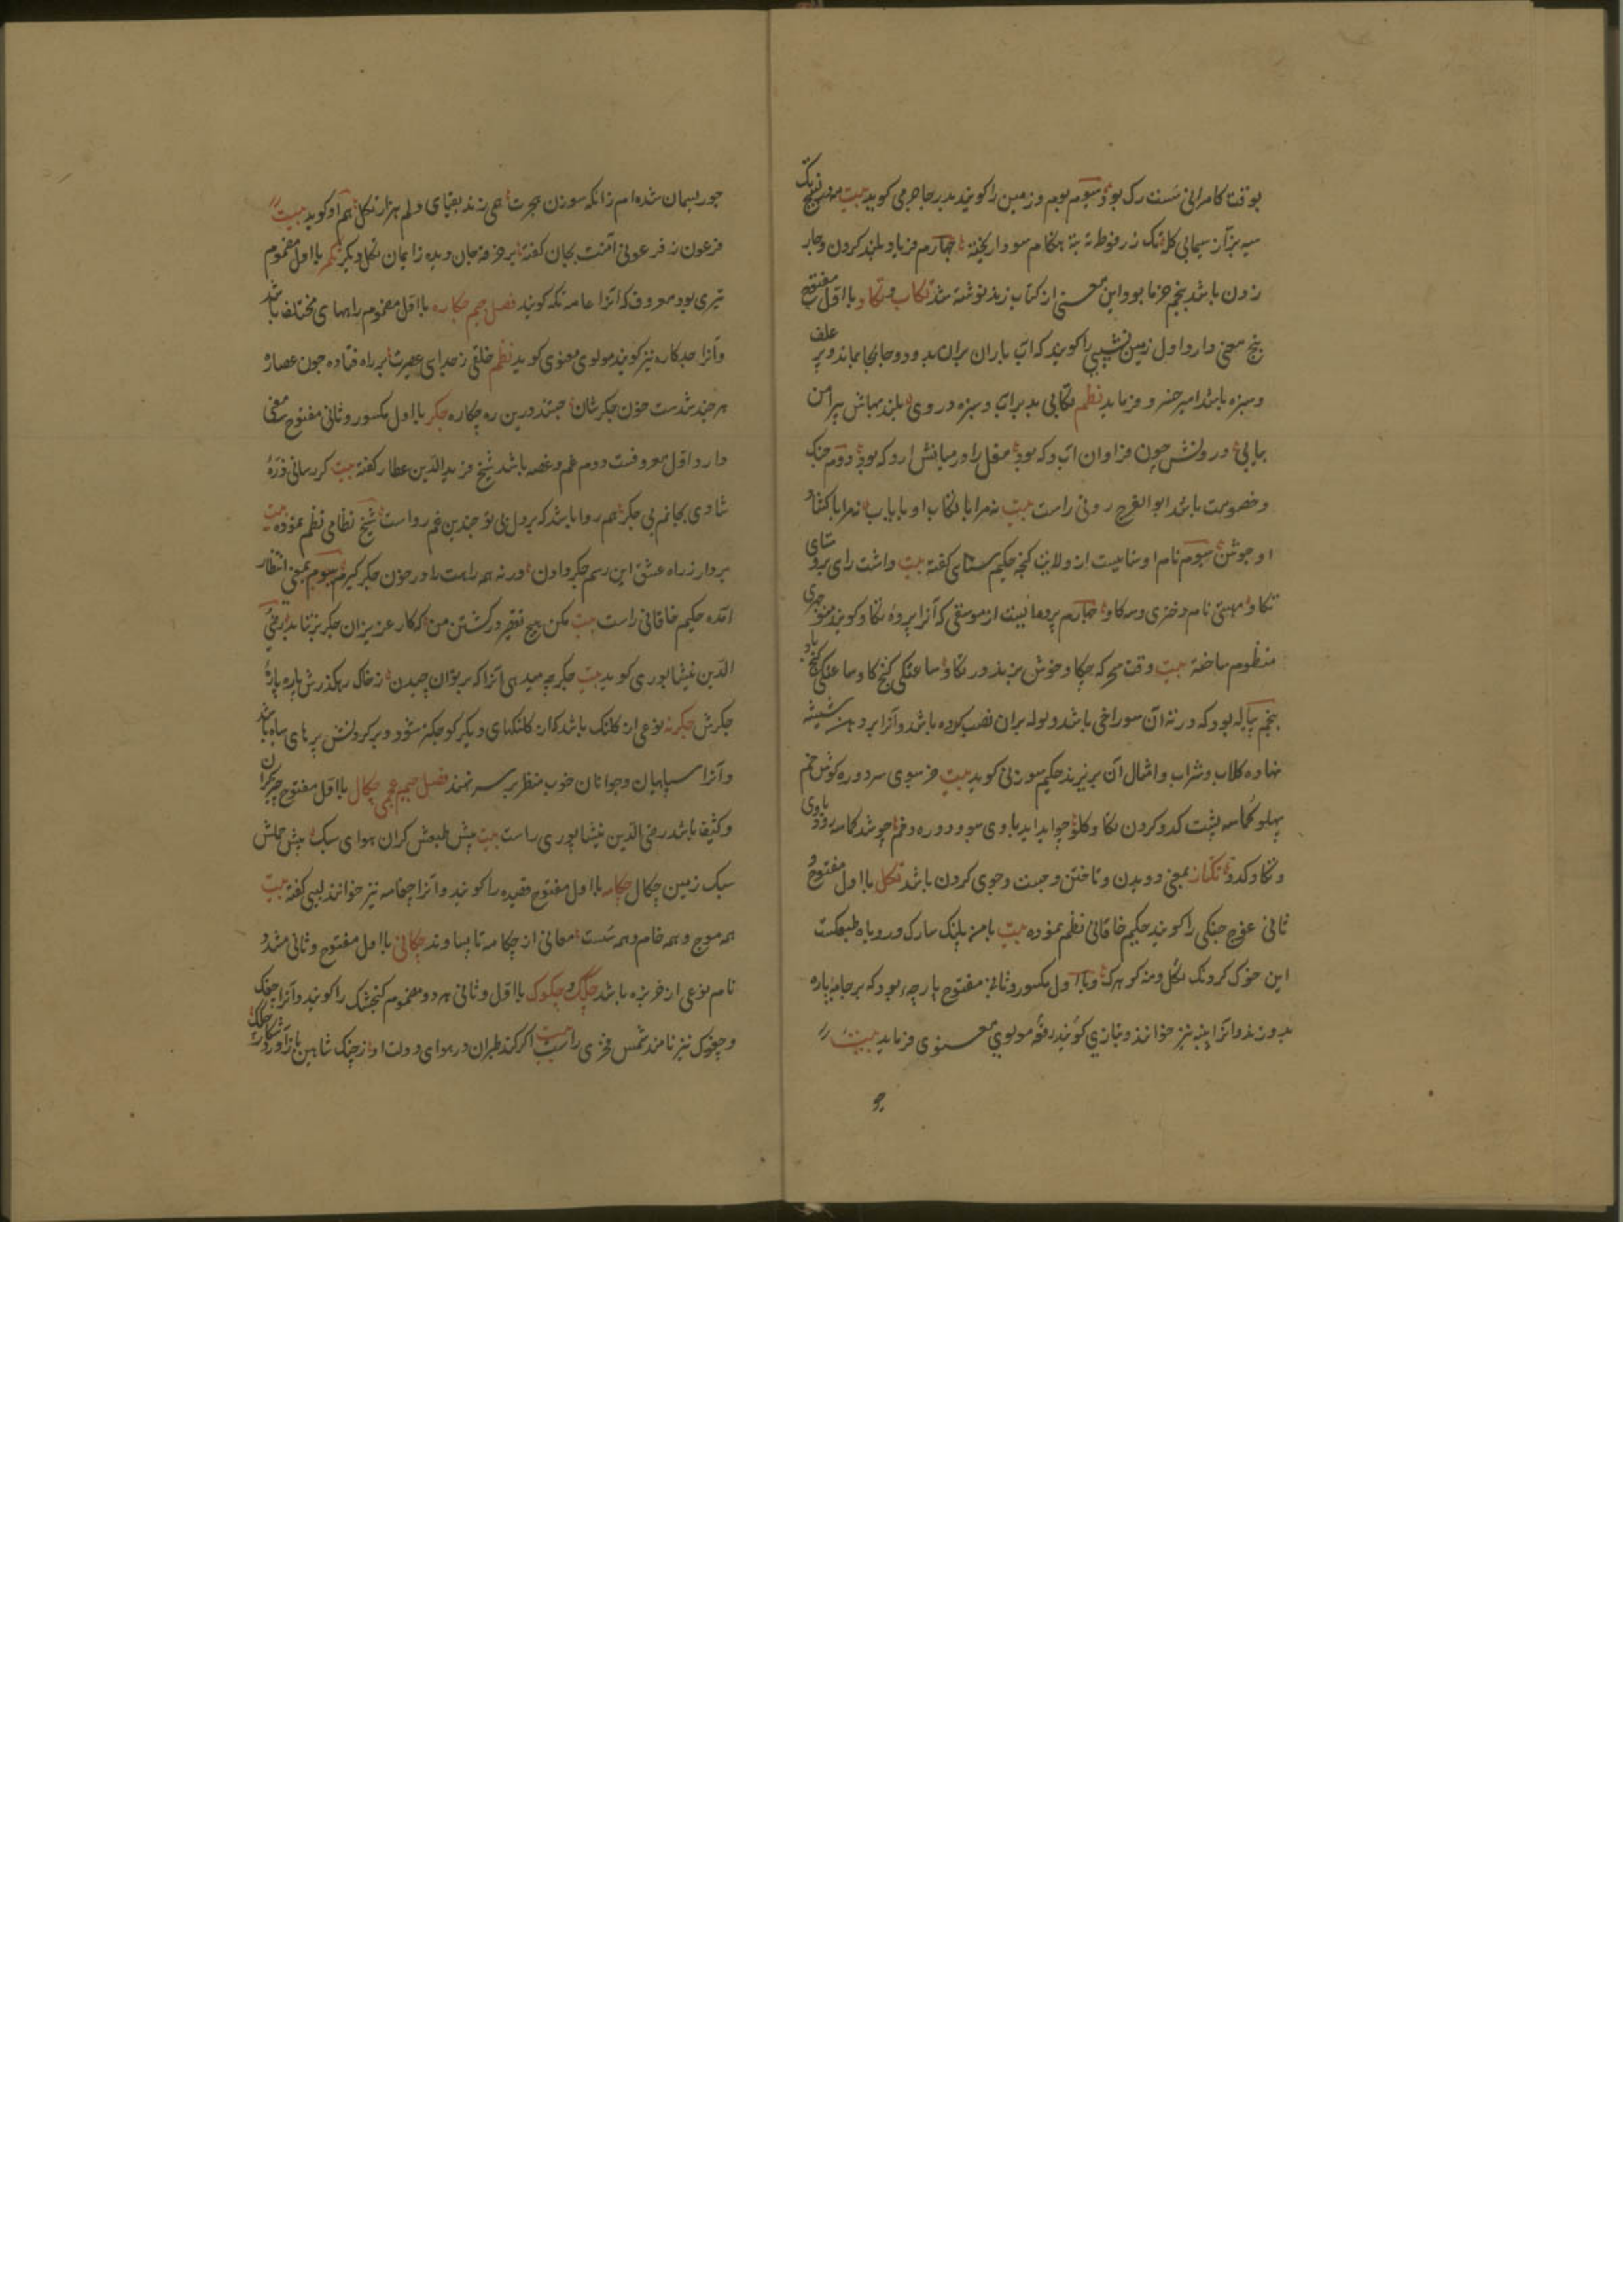 بوقت کامرانی سست رک بود سوم بوم و زمین را کویند بدر جاجرمی کوید بیت
زدن باشد پنجم خرما بود این معنی از کتاب زند نوشته شد تکاب و تکاو با اول مفتوح
پنج معنی دارد اول زمین نشیبی را کویند که آب باران بران بدود و جابجا بماند و پر علف
و سبزه باشد امیر خسرو فرماید نظم تکابی بد پر آب و سبزه در وی بلندیهاش پیرامن
بیابی درونش چون فراوان آب و که بود دوم جنک
و خصومت باشد ابوالفرج رونی راست بیت نه مرا با تکاب او پایاب نه مرا با کشاد
او جوشن سیوم نام اوستاییست از ولایت کنجه حکیم سنائی کفته بیت
چهارم پرده‌ایست از موسیقی که آنرا پرده تکاو کویند منوچهری
منظوم ساخته بیت وقت سحرکه چکاو خوش بزند در تکاو ساعتکی کنج کاو ساعتکی کنج باد
پنجم پیاله بود که در ته آن سوراخی باشد و لوله بران نصب کرده باشد و آنرا بر دهن شیشه
نهاده کلاب و شراب و امثال آن بریزند حکیم سوزنی کوید بیت خر سوی سر دوره کوش خم
پهلو کماسه پشت کدو کردن تکا و کلو
و تکاو کدو تکتاز بمعنی دویدن و تاختن و جست و جوی کردن باشد تکل با اول مفتوح و
ثانی غوچ جنکی را کویند حکیم خاقانی نظم نموده بیت با من پلنک سارک و روباه طبعکست
این خوک کردنک تکل و و با اول مکسور و ثانی مفتوح پارچه بود که بر جامه پاره
بدوزند و آنرا پینه نیز خوانند و بتازی کویند رقعه مولوی معنوی فرماید بیت
چو
چو ریسمان شده‌ام زانکه سوزن هجرت همی زند بقبای دلم هزار تکل هم او کوید بیت
فرعون ز فرعونی آمنت بجان کفته بر خرقه جان دیده ز ایمان تکلی دیکر تکمر با اول مضموم
تیری بود معروف که آنرا عامه تکه کویند فصل جیم جکاره با اول مضموم راههای مختلف باشد
و آنرا جدکاره نیز کویند مولوی معنوی کوید نظم خلقی ز جدایی عصیرت بر راه فتاده چون عصاره
هر چند شدست خون جکرشان جستند درین ره جکاره جکر با اول مکسور و ثانی مفتوح سه معنی
دارد اول معروفست دوم غم و غصه باشد شیخ فرید الدین عطار کفته بیت کر رسانی ذره
شادی بجانم بی جکر هم روا باشد که بر دل بی تو چندین غم رواست شیخ نظامی نظم نموده بیت
بردار ز راه عشق این رسم جکر دادن ورنه همه راهت را در خون جکر کیرم سیوم بمعنی انتظار
آمده حکیم خاقانی راست بیت مکن هیچ تقصیر در کشتن من که کار عزیزان جکر برنتابد رضی
الدین نیشابوری کوید بیت جکر چه میدهی آنرا که بر توان چیدن ز خاک رهکذرش پاره پاره
جکرش جکرنه نوعی از کلنک باشد که از کلنکهای دیکر کوچکتر شود و بر کردنش پرهای سیاه باشد
و آنرا سپاهیان و جوانان خوب منظر بر سر نهند فصل جیم عجمی چکال با اول مفتوح چیز کران
و کثیف باشد رضی الدین نیشابوری راست بیت پیش طبعش کران هوای سبک پیش حلمش
سبک زمین چکال چکامه با اول مفتوح قصیده را کویند و آنرا چغامه نیز خوانند لبیبی کفته بیت
همه موج و همه خام و همه سست معانی از چکامه تا پساوند چکانی با اول مفتوح و ثانی مشدد
نام نوعی از خربزه باشد چکک و چکوک با اول و ثانی هر دو مضموم کنجشک را کویند و آنرا چغک
و چغوک نیز نامند شمس فخری راست بیت اگر کند طیران در هوای دولت او ز چنک شاهین باز آورد شکار چکک